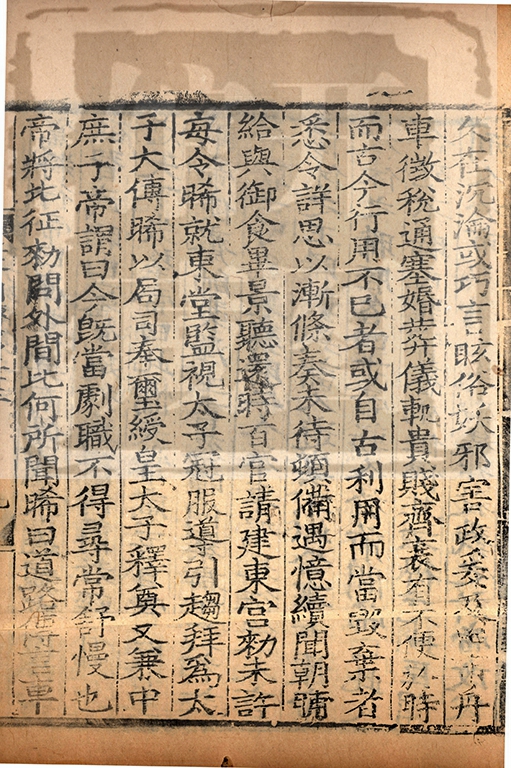 久在沉淪或巧言眩俗妖邪害政委
車徵稅通塞婚葬儀軌貴賤齊衰有不便於時
而古今行用不已者或自古利用而當毀棄者
悉令詳思以漸條奏未待頓備遇憶續聞朝晡
給與御食畢景聽還時百官請建東宮勑未許
每令晞就東堂監視太子冠服導引趨拜為太
子大傅晞以局司奉璽綬皇太子釋奠又兼中
庶子帝謂曰今既當劇職不得尋常舒慢也
帝將北征勑問外間比何所聞晞曰道路傳言車